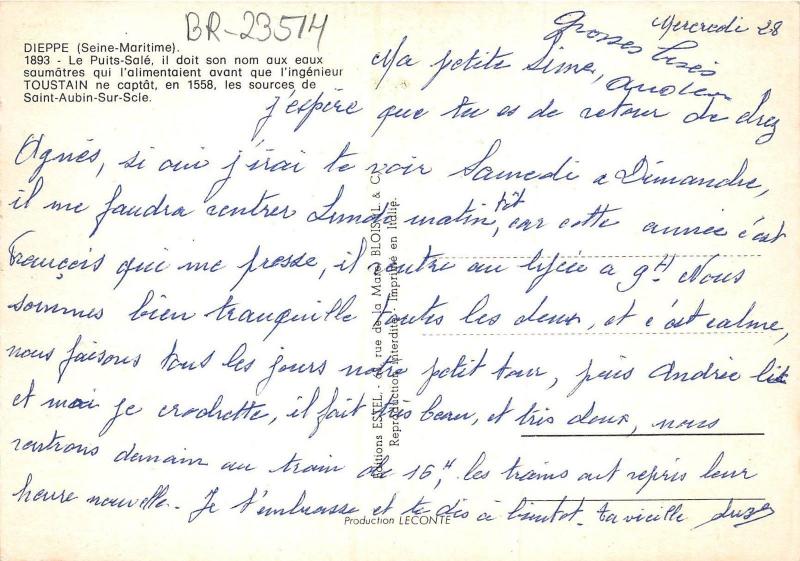 BR-23514
DIEPPE (Seine-Maritime).
1893 - Le Puits-Salé, il doit son nom aux eaux
saumâtres qui l'alimentaient avant que l'ingénieur
TOUSTAIN ne captât, en 1558, les sources de
Saint-Aubin-Sur-Scie.
Mercredi 28
Grosses bises
Ma petite Simo,
j'espère que tu es de retour de chez
Agnès, si oui j'irai te voir Samedi a Dimanche,
il me faudra rentrer Lundi matin, tôt car cette année c'est
François qui me presse, il rentre au lycée a 9H. Nous
sommes bien tranquille toutes les deux, et c'est calme,
nous faisons tous les jours notre petit tour, puis Andrée lit
et moi je crochette, il fait très beau, et très doux, nous
rentrons demain au train de 16H, les trains ont repris leur
heure nouvelle. Je t'embrasse et te dis à bientot. ta vieille
Editions ESTEL - rue de la Mare BLOIS
Reproduction Interdite - Imprimé en Italie.
Production LECONTE